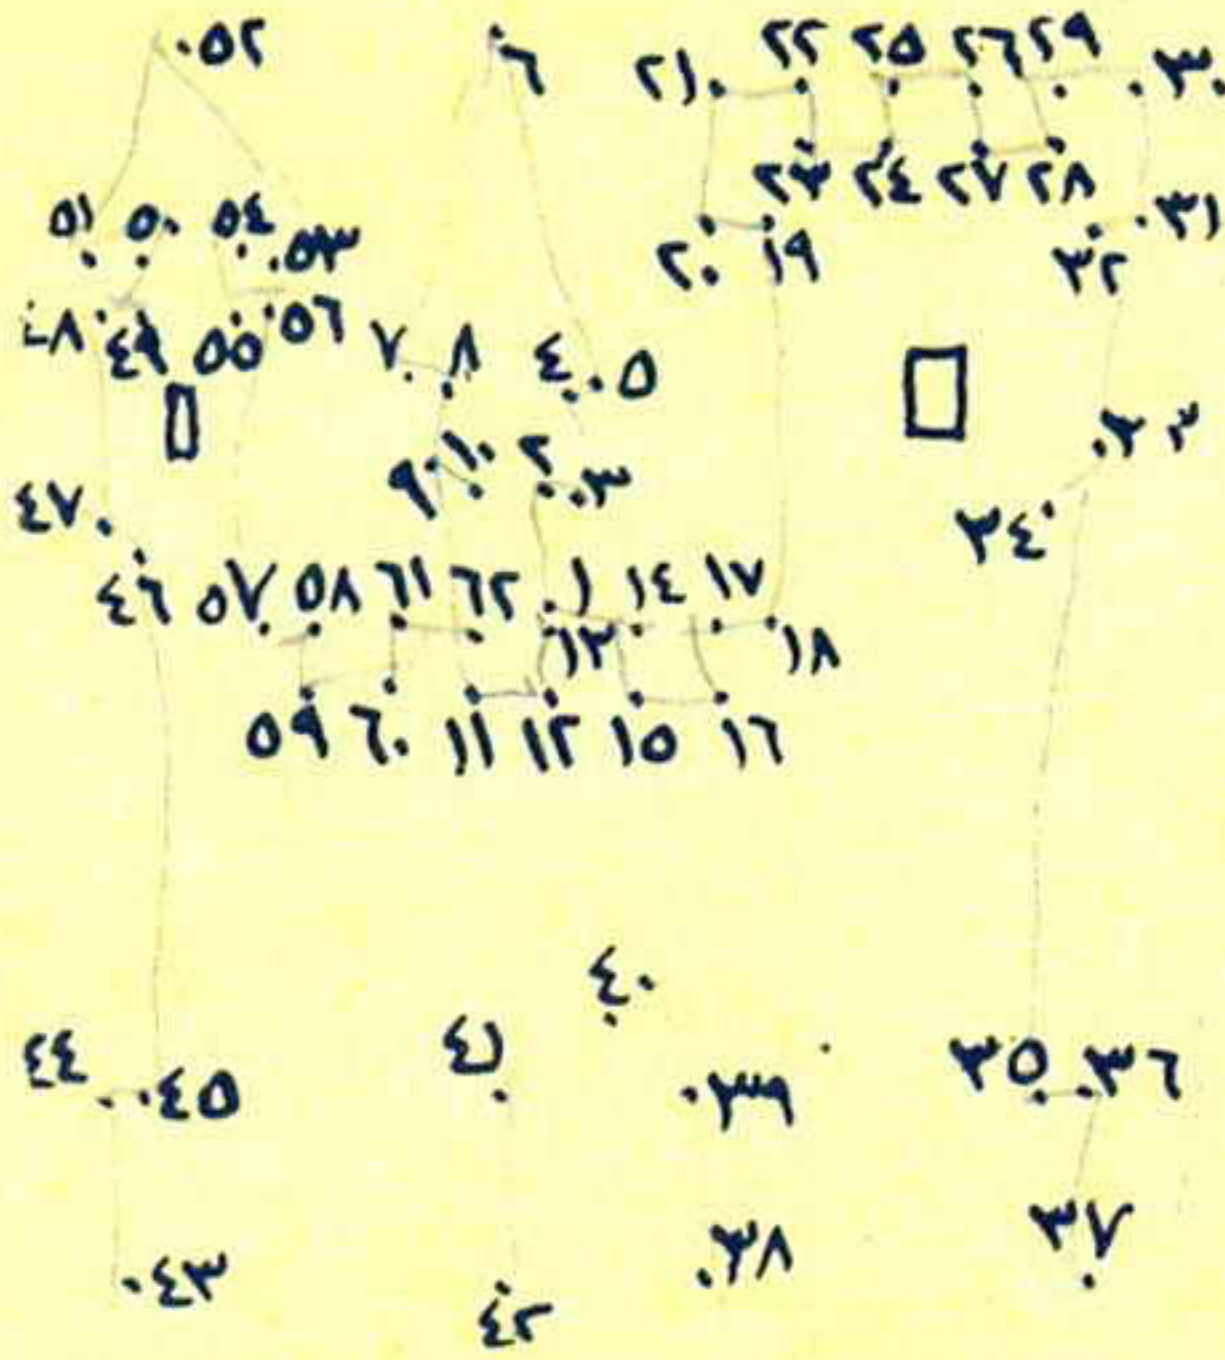 ٥٢ ٦ ٢١ ٢٢ ٢٥ ٢٦ ٢٩ ٣٠
٢٣ ٢٤ ٢٧ ٢٨
٥١ ٥٠ ٥٤ ٥٣ ٢٠ ١٩ ٣٢ ٣١
٤٨ ٤٩ ٥٥ ٥٦ ٧ ٨ ٤ ٥
٩ ١٠ ٢ ٣ ٣٣
٤٧ ٣٤
٤٦ ٥٧ ٥٨ ٦١ ٦٢ ١ ١٤ ١٧
١٣ ١٨
٥٩ ٦٠ ١١ ١٢ ١٥ ١٦
٤٠
٤٤ ٤٥ ٤١ ٣٩ ٣٥ ٣٦
٤٣ ٤٢ ٣٨ ٣٧